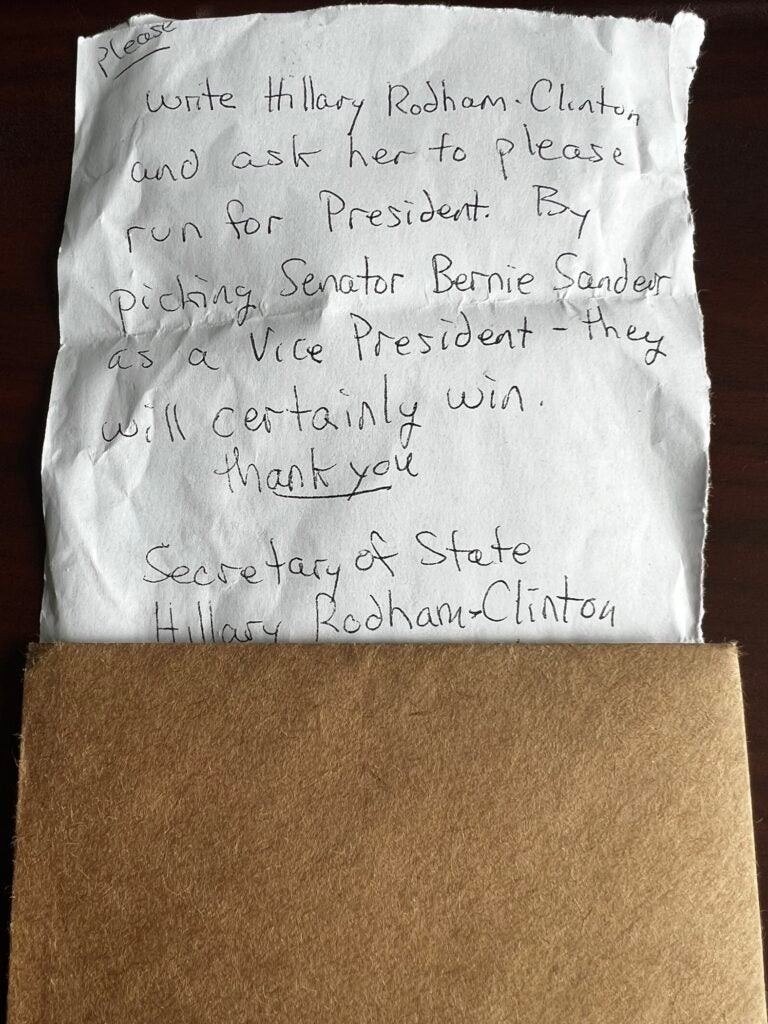 Please
write Hillary Rodham-Clinton
and ask her to please
run for President. By
picking Senator Bernie Sanders
as a Vice President - they
will certainly win.
thank you
Secretary of State
Hillary Rodham-Clinton